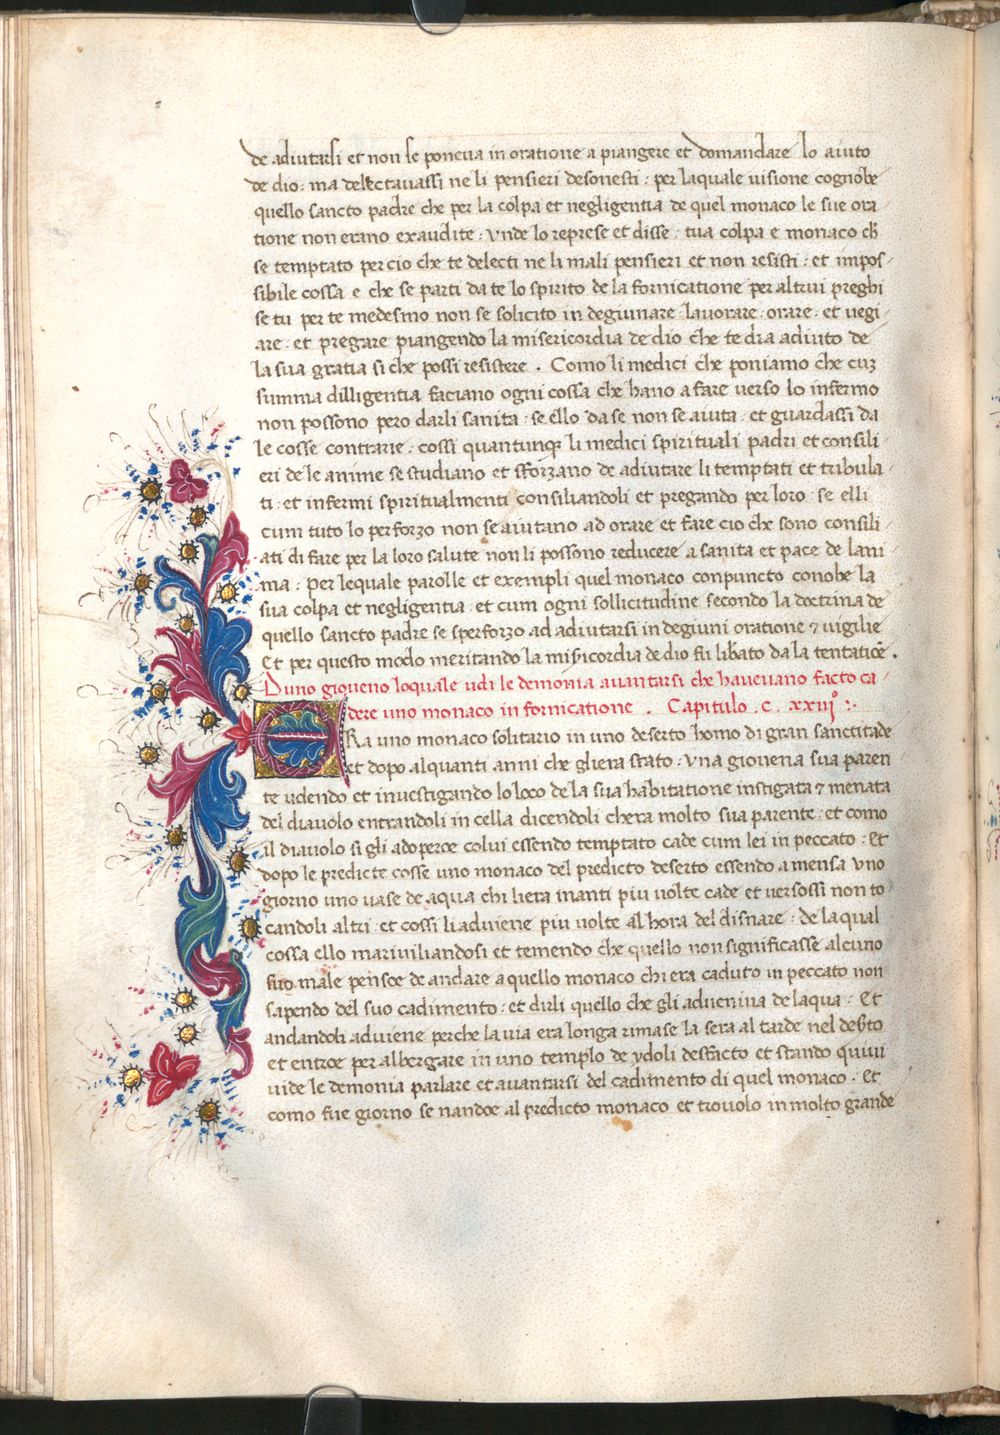 de adiutarsi et non se poneua in oratione a piangere et domandare lo aiuto
de dio : ma delectauassi ne li pensieri desonesti : per laquale uisione cognobe
quello sancto padre che per la colpa et negligentia de quel monaco le sue ora
tione non erano exaudite : vnde lo represe et disse : tua colpa e monaco ch̄
se temptato per cio che te delecti ne li mali pensieri et non resisti : et impos-
sibile cossa e che se parti da te lo spirito de la fornicatione per altrui preghi
se tu per te medesmo non se solicito in degiunare lauorare : orare : et uegi-
are : et pregare piangendo la misericordia de dio che te dra adiuto de
la sua gratia si che possi resistere . Como li medici che poniamo che cuz
summa dilligentia faciano ogni cossa che hano a fare uerso lo infermo
non possono pero darli sanita : se ello da se non se aiuta : et guardassi da
le cosse contrarie : cossi quantunqȝ li medici spirituali padri et consili
eri de le anime se studiano et sforzano de adiutare li temptati et tribula-
ti : et infermi spiritualmenti consiliandoli et pregando per loro : se elli
cum tuto lo perforzo non se aiutano ad orare et fare cio che sono consili
ati di fare per la loro salute non li possono reducere a sanita et pace de lani-
ma : per lequale parolle et exempli quel monaco conpuncto conobe la
sua colpa et negligentia : et cum ogni sollicitudine secondo la doctrina de
quello sancto padre se sperforzo ad adiutarsi in degiuni oratione ⁊ uigilie
Et per questo modo meritando la misicordia de dio fu libato da la tentatiōe .
Duno gioueno loquale udi le demonia auantarsi che haueuano facto ca-
dere uno monaco in fornicatione . Capitulo . c . xxuıj° :-
ERa uno monaco solitario in uno deserto homo di gran sanctitade
et dopo alquanti anni che gliera stato : vna giouena sua paren
te udendo et inuestigando lo loco de la sua habitatione instigata ⁊ menata
del diauolo entrandoli in cella dicendoli chera molto sua parente : et como
il diauolo si gli adoperoe colui essendo temptato cade cum lei in peccato : Et
dopo le predicte cosse uno monaco del predicto deserto essendo a mensa vno
giorno uno uase de aqua chi liera inanti piu uolte cade et uersossi non to
candoli altri : et cossi li aduiene piu uolte al hora del disnare : de la qual
cossa ello mariuiliandosi et temendo che quello non significasse alcuno
suo male pensoe de andare a quello monaco chi era caduto in peccato non
sapendo del suo cadimento : et dirli quello che gli adueniua de laqua : Et
andandoli aduiene perche la uia era longa rimase la sera al tarde nel des̄to
et entroe per albergare in uno templo de ydoli desfacto et stando quiui
uide le demonia parlare et auantarsi del cadimento di quel monaco : Et
como fue giorno se nandoe al predicto monaco et trouolo in molto grande